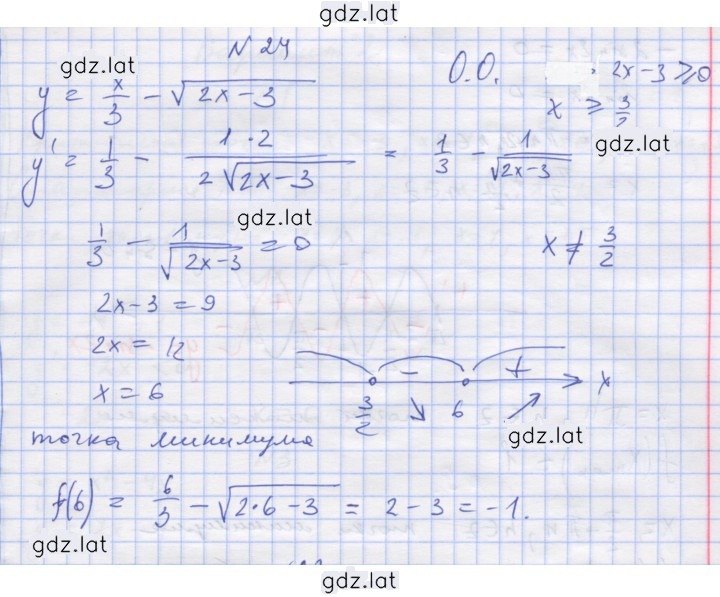 gdz.lat
N 24
gdz.lat
y = x/3 − √(2x−3) О.О. 2x−3 ≥ 0
x ≥ 3/2
gdz.lat
y' = 1/3 − (1·2)/(2√(2x−3)) = 1/3 − 1/√(2x−3)
gdz.lat
1/3 − 1/√(2x−3) = 0 x ≠ 3/2
2x−3 = 9
2x = 12
x = 6
− +
3/2 ↘ 6 ↗ x
gdz.lat
точка минимума
f(6) = 6/3 − √(2·6−3) = 2−3 = −1.
gdz.lat
gdz.lat